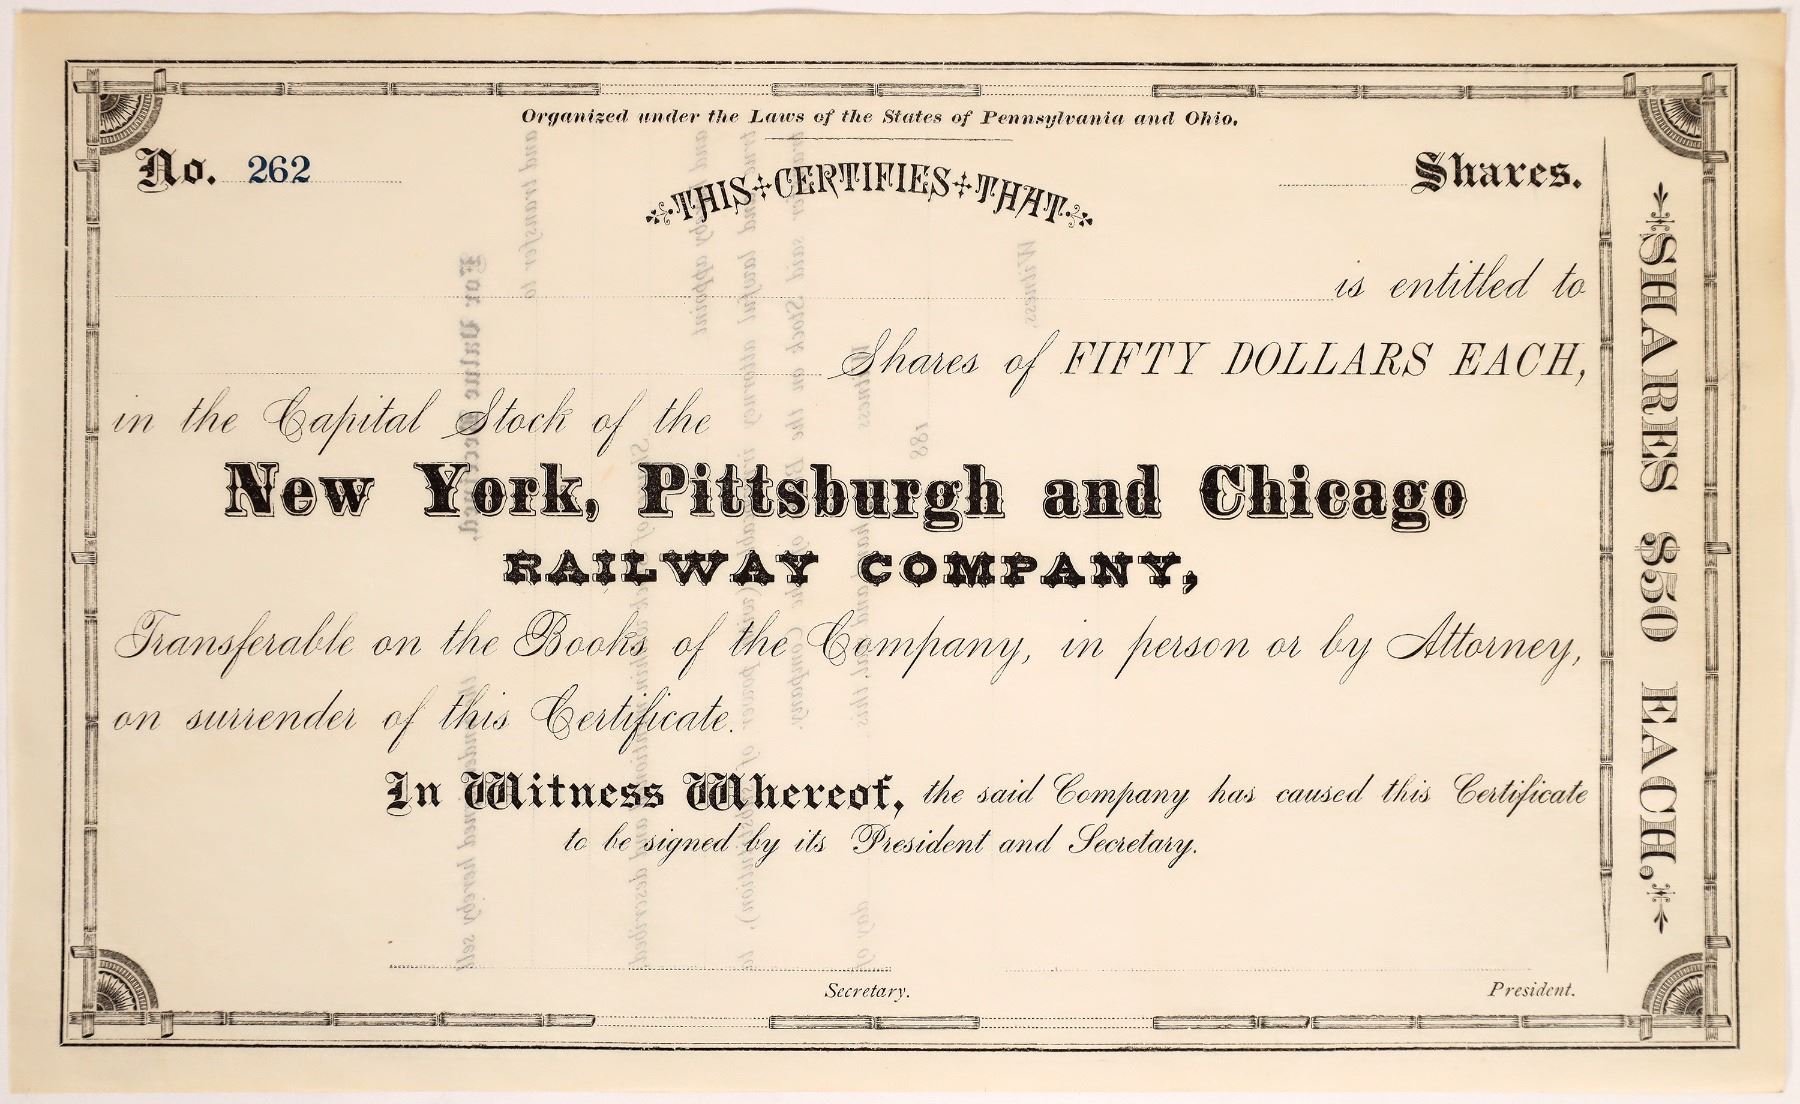 Organized under the Laws of the States of Pennsylvania and Ohio.
No. 262
Shares.
THIS CERTIFIES THAT
is entitled to
Shares of FIFTY DOLLARS EACH,
in the Capital Stock of the
New York, Pittsburgh and Chicago
RAILWAY COMPANY,
Transferable on the Books of the Company, in person or by Attorney,
on surrender of this Certificate.
In Witness Whereof, the said Company has caused this Certificate
to be signed by its President and Secretary.
Secretary.
President.
SHARES $50 EACH,